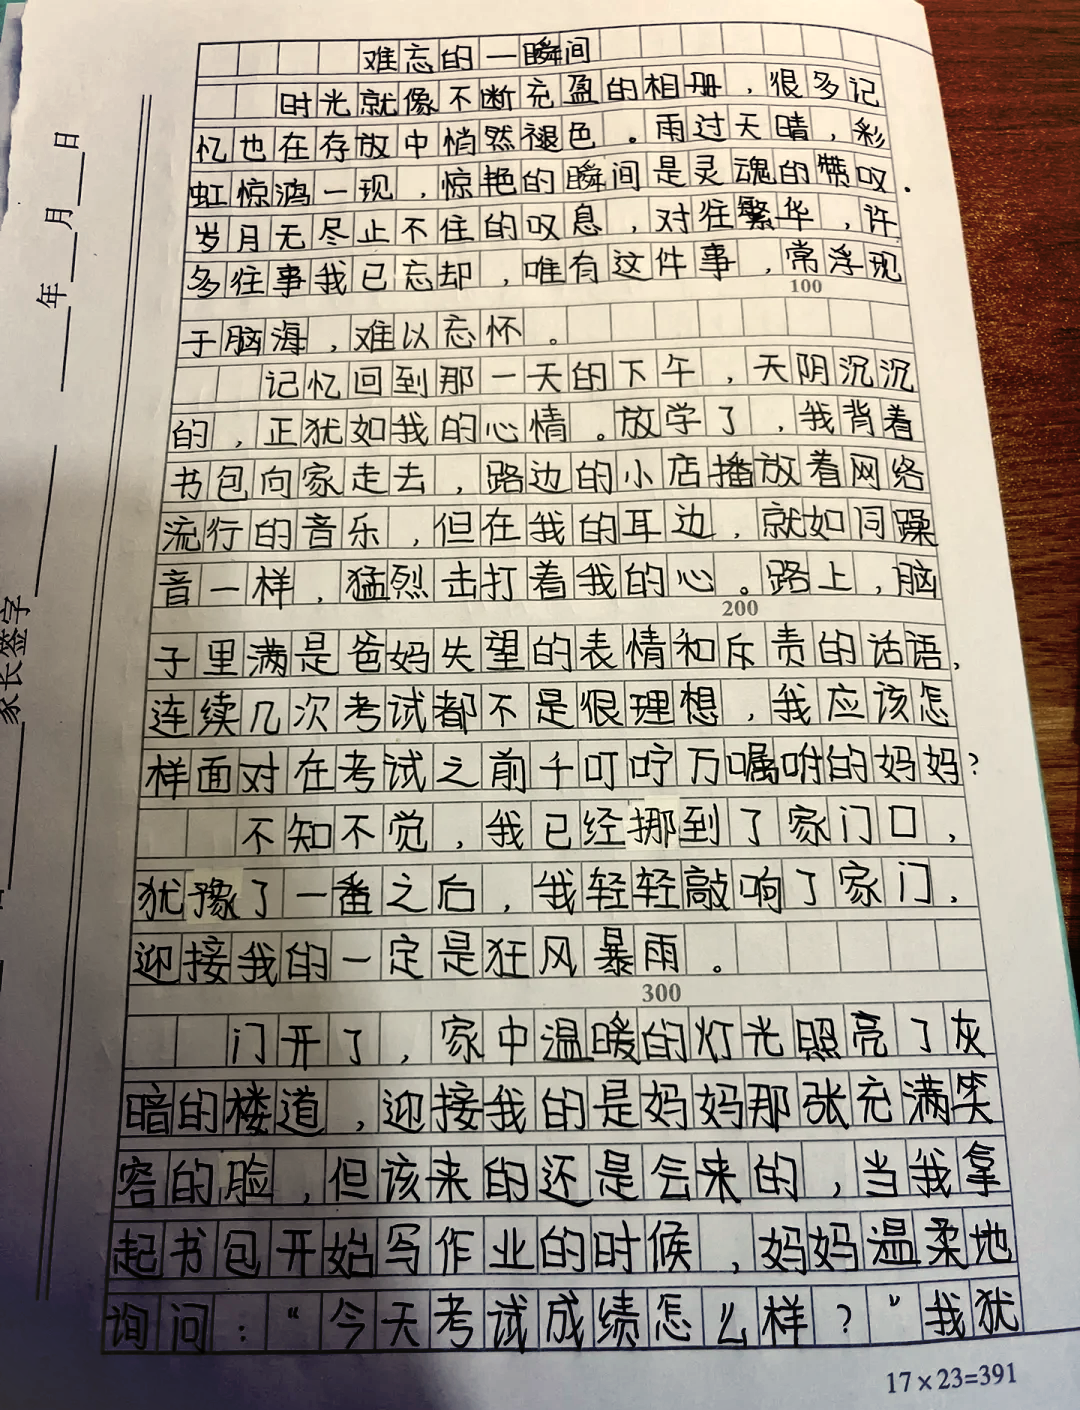 难忘的一瞬间
时光就像不断充盈的相册，很多记
忆也在存放中悄然褪色。雨过天晴，彩
虹惊鸿一现，惊艳的瞬间是灵魂的赞叹.
岁月无尽止不住的叹息，对往繁华，许
多往事我已忘却，唯有这件事，常浮现
100
于脑海，难以忘怀。
记忆回到那一天的下午，天阴沉沉
的，正犹如我的心情。放学了，我背着
书包向家走去，路边的小店播放着网络
流行的音乐，但在我的耳边，就如同躁
音一样，猛烈击打着我的心。路上，脑
200
子里满是爸妈失望的表情和斥责的话语，
连续几次考试都不是很理想，我应该怎
样面对在考试之前千叮咛万嘱咐的妈妈?
不知不觉，我已经挪到了家门口，
犹豫了一番之后，我轻轻敲响了家门，
迎接我的一定是狂风暴雨。
300
门开了，家中温暖的灯光照亮了灰
暗的楼道，迎接我的是妈妈那张充满笑
容的脸，但该来的还是会来的，当我拿
起书包开始写作业的时候，妈妈温柔地
询问：“今天考试成绩怎么样？”我犹
17×23=391
年 月 日
家长签字